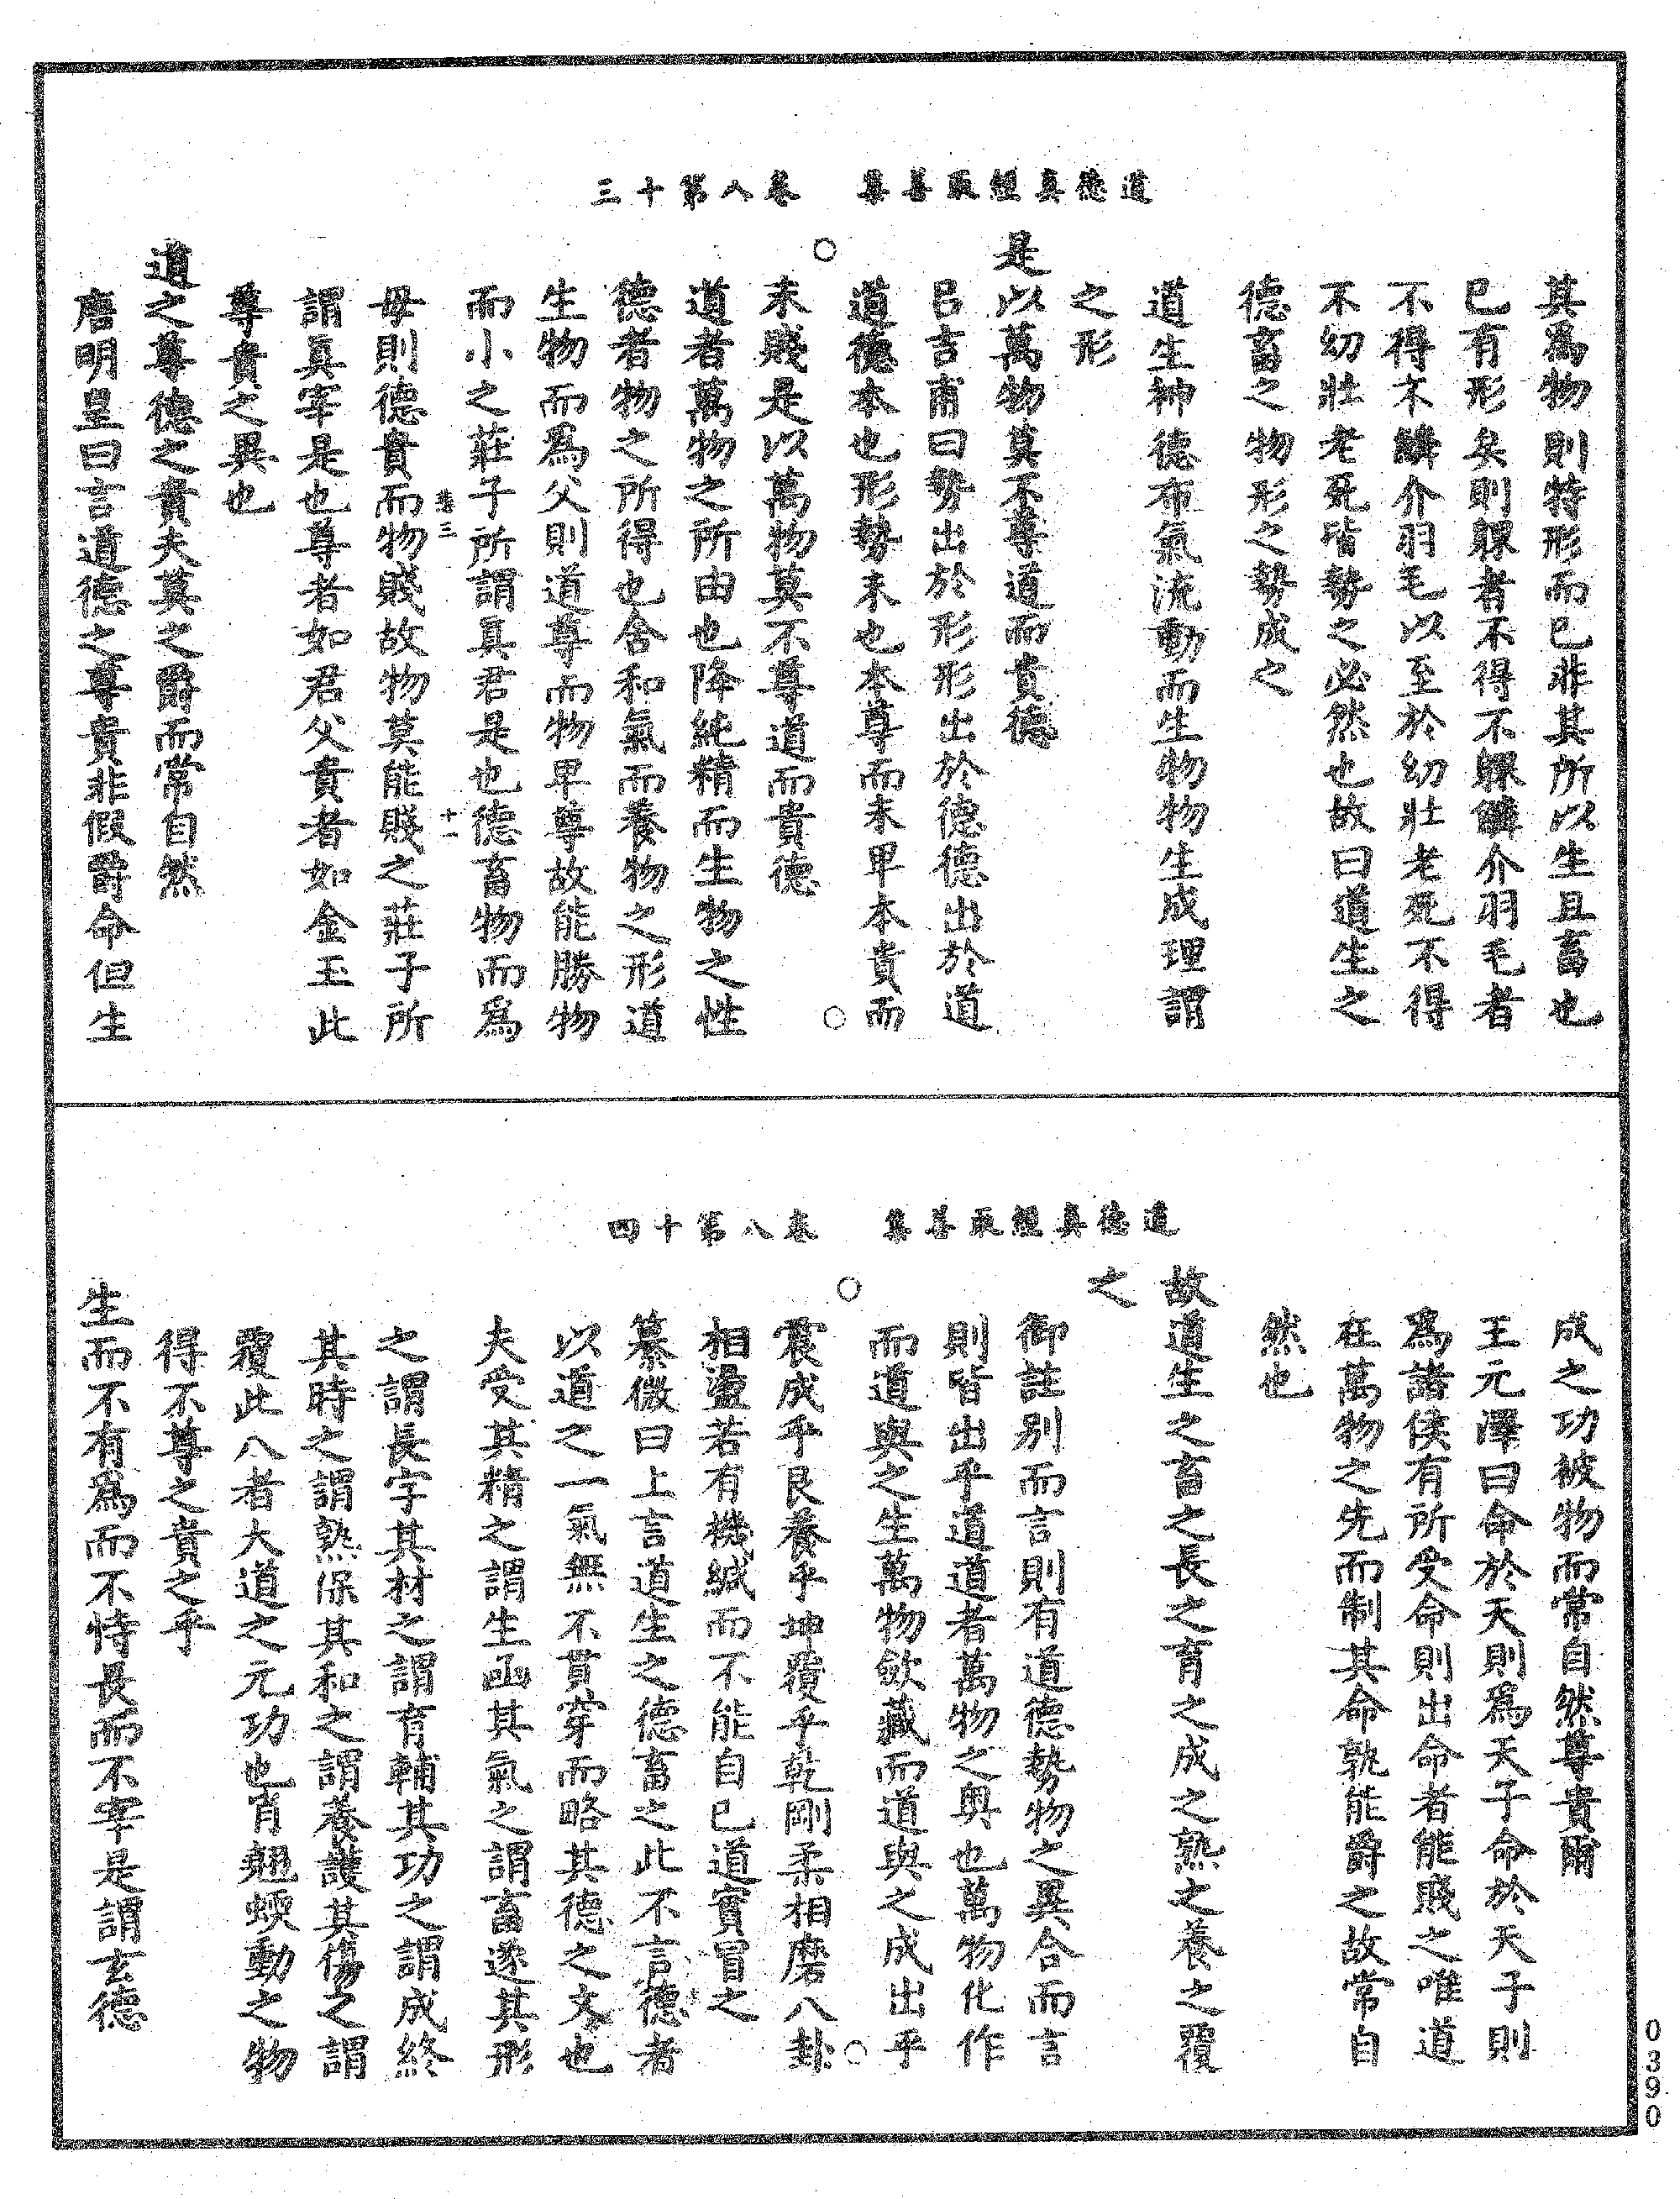 道德真經取善集　卷八第十三
其爲物則特形而已非其所以生且畜也
已有形矣則躶者不得不躶鱗介羽毛者
不得不鱗介羽毛以至於幼壯老死不得
不幼壯老死皆勢之必然也故曰道生之
德畜之物形之勢成之
道生神德布氣流動而生物物生成理謂
之形
是以萬物莫不尊道而貴德
呂吉甫曰勢出於形形出於德德出於道
道德本也形勢末也本尊而末卑本貴而
末賤是以萬物莫不尊道而貴德
道者萬物之所由也降純精而生物之性
德者物之所得也舍和氣而養物之形道
生物而爲父則道尊而物卑尊故能勝物
而小之莊子所謂真君是也德畜物而爲
卷三　十一
母則德貴而物賤故物莫能賤之莊子所
謂真宰是也尊者如君父貴者如金玉此
尊貴之異也
道之尊德之貴夫莫之爵而常自然
唐明皇曰言道德之尊貴非假爵命但生
道德真經取善集　卷八第十四
成之功被物而常自然尊貴爾
王元澤曰命於天則爲天子命於天子則
爲諸侯有所受命則出命者能賤之唯道
在萬物之先而制其命孰能爵之故常自
然也
故道生之畜之長之育之成之熟之養之覆
之
御註別而言則有道德勢物之異合而言
則皆出乎道道者萬物之奧也萬物化作
而道與之生萬物斂藏而道與之成出乎
震成乎艮養乎坤覆乎乾剛柔相磨八卦
相盪若有機緘而不能自已道實冒之
纂微曰上言道生之德畜之此不言德者
以道之一氣無不貫穿而略其德之文也
夫受其精之謂生函其氣之謂畜遂其形
之謂長字其材之謂育輔其功之謂成終
其時之謂熟保其和之謂養護其傷之謂
覆此八者大道之元功也肖翹蝡動之物
得不尊之貴之乎
生而不有爲而不恃長而不宰是謂玄德
0390